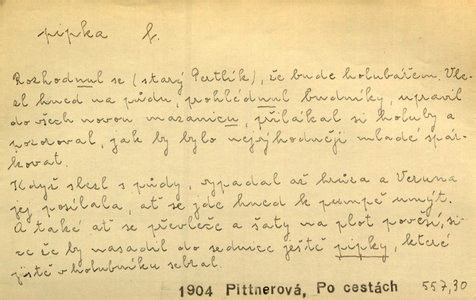 pipka f.
Rozhodnul se (starý Pertlík), že bude holubářem. Vle-
zl hned na půdu, prohlédnul budníky, upravil
do všech novou mazanicu, přilákal si holuby a
pozoroval, jak by bylo nejvýhodněji mladé spár-
kovat.
Když slezl s půdy, vypadal až hrůza a Veruna
jej posílala, ať se jde hned k pumpě umýt.
A také ať se převleče a šaty na plot pověsí, si-
ce že by nasadil do sednice ještě pipky, které
jistě v holubníku sebral.
1904 Pittnerová, Po cestách 557,30